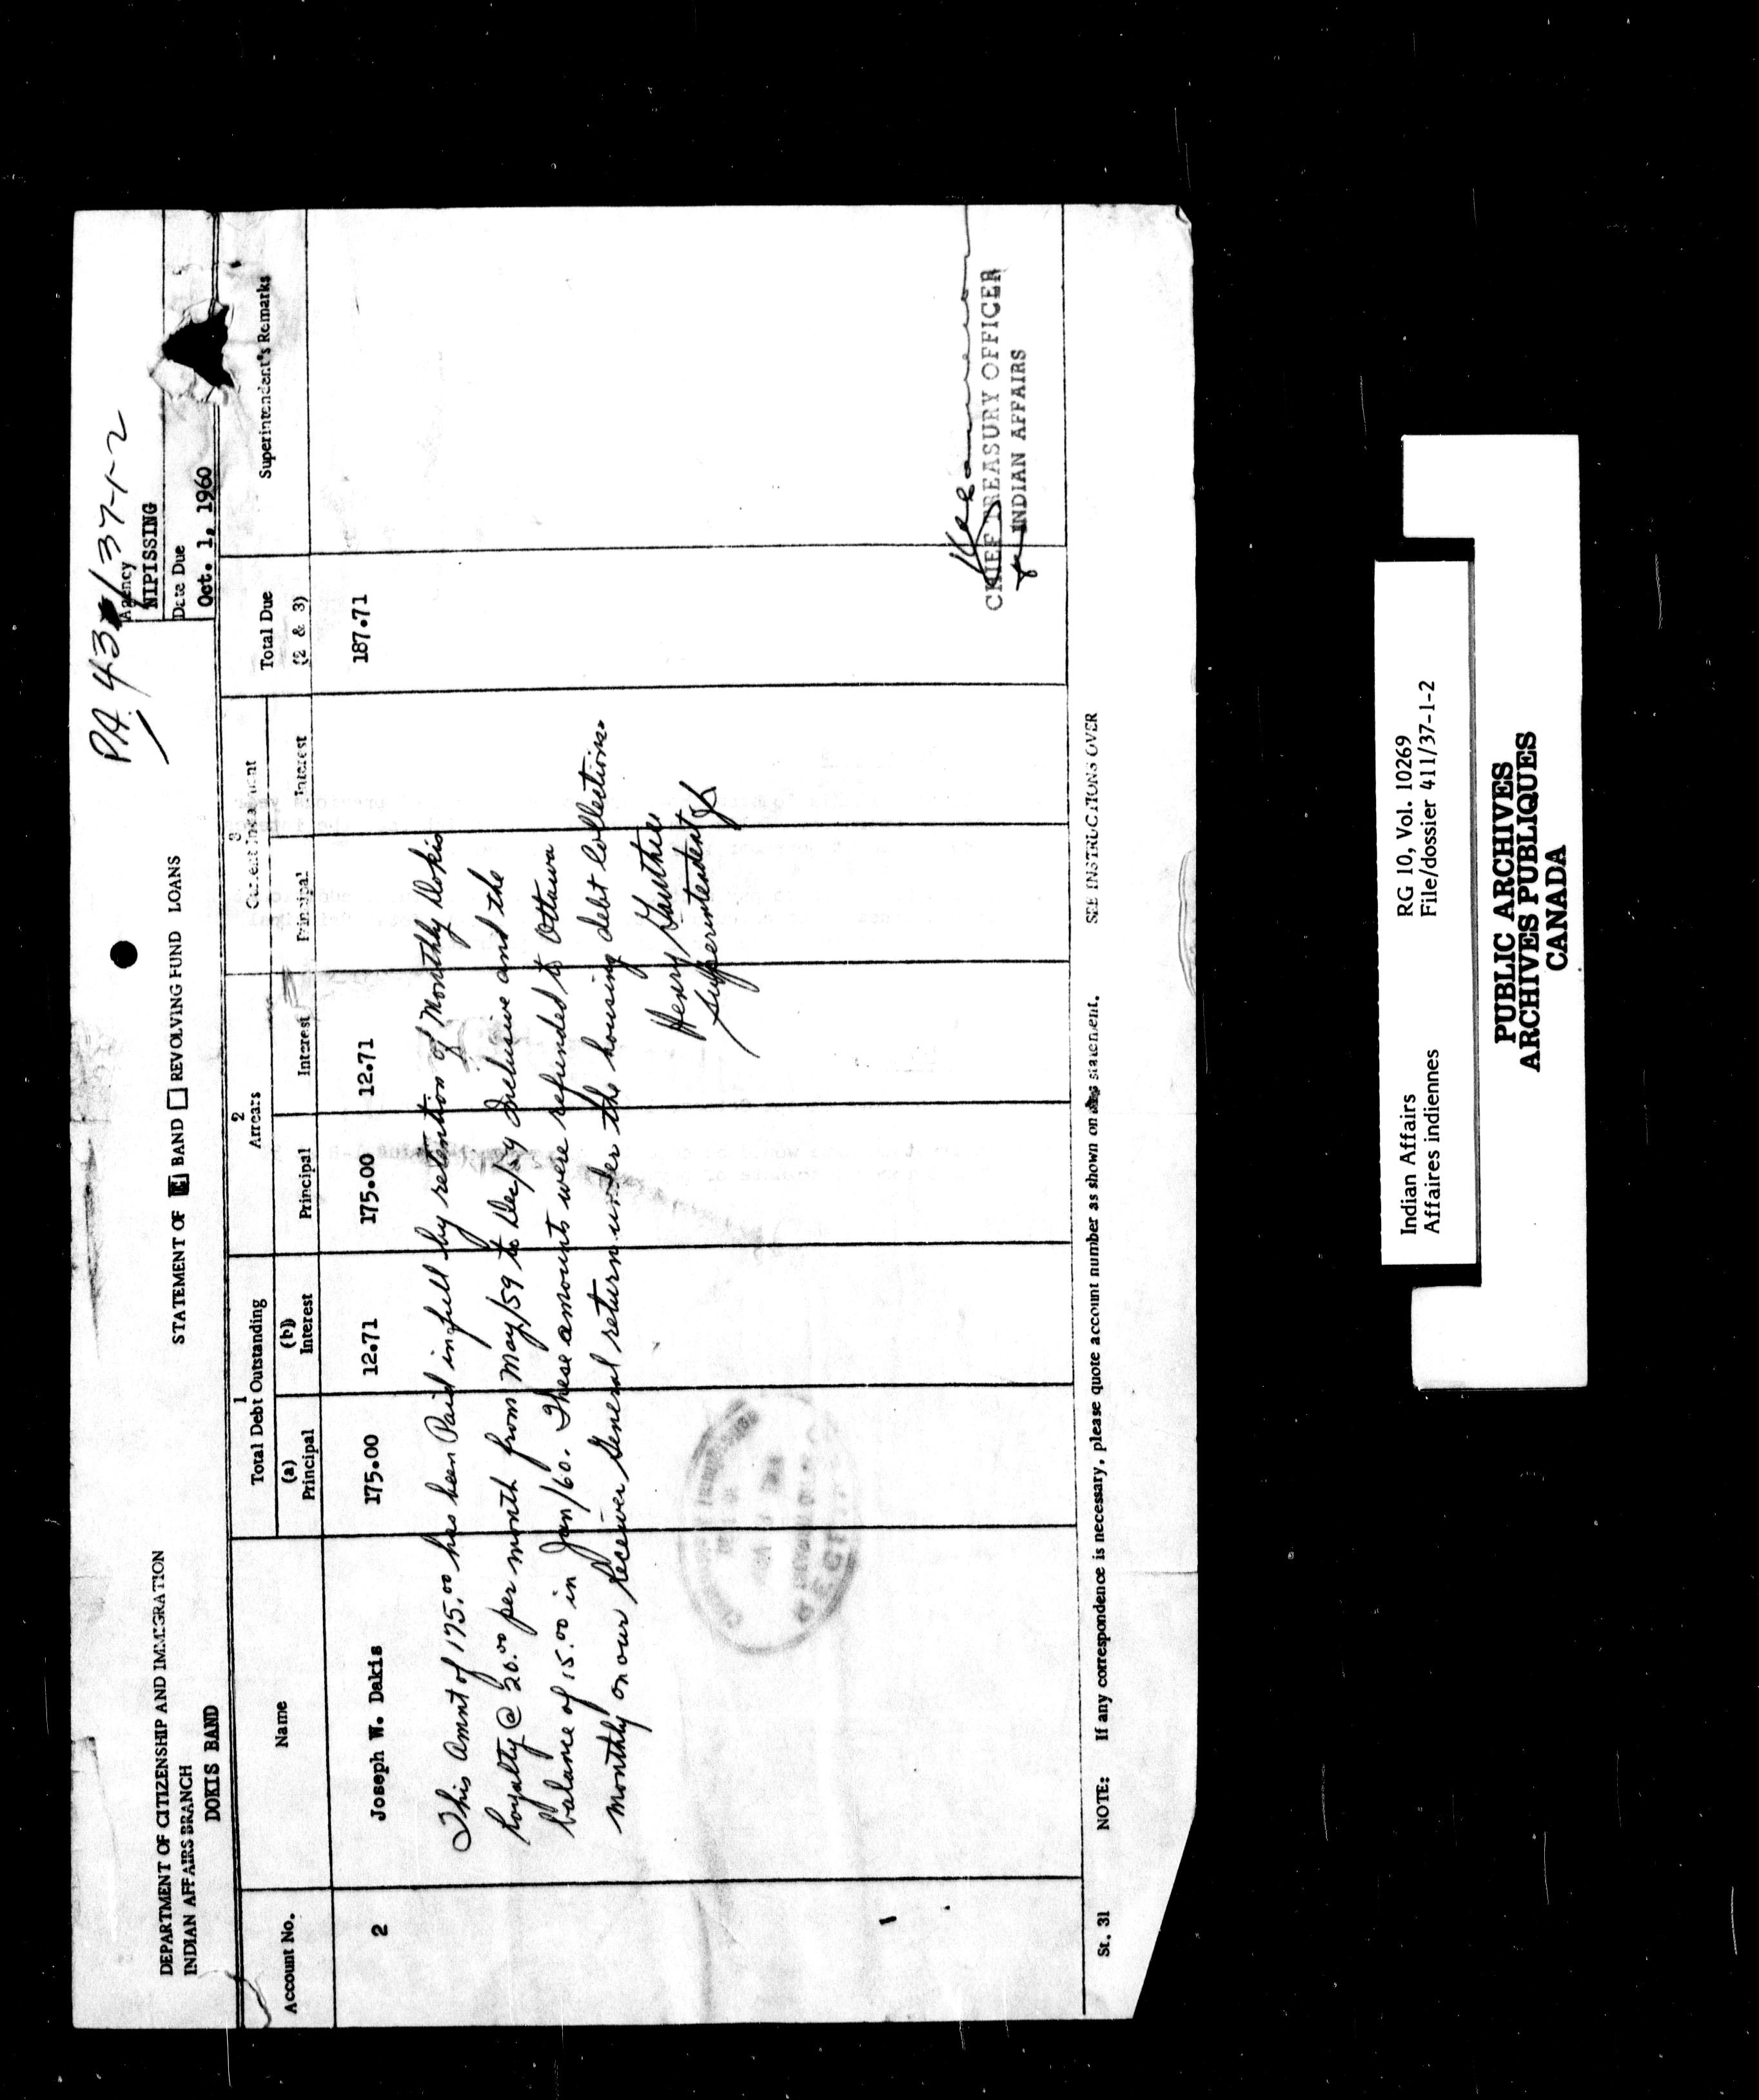 PA 43 /37-1-2
DEPARTMENT OF CITIZENSHIP AND IMMIGRATION
INDIAN AFFAIRS BRANCH
DOKIS BAND
STATEMENT OF BAND REVOLVING FUND LOANS
Agency
NIPISSING
Date Due
Oct. 1, 1960
Account No.
Name
1
Total Debt Outstanding
(a)
Principal
(b)
Interest
2
Arrears
Principal
Interest
3
Current
Principal
Interest
Total Due
(2 & 3)
Superintendent's Remarks
2 Joseph W. Dakis 175.00 12.71 175.00 12.71 187.71
This Amnt of 175.00 has been Paid in full by retention of Monthly Dokis
Royalty @ 20.00 per month from May/59 to Dec/59 Inclusive and the
balance of 15.00 in Jan/60. These amounts were refunded to Ottawa
monthly on our Receiver General return under the housing debt Collections
Henry Gauthier
Superintendent
CHIEF TREASURY OFFICER
INDIAN AFFAIRS
St. 31 NOTE: If any correspondence is necessary, please quote account number as shown on this statement. SEE INSTRUCTIONS OVER
Indian Affairs RG 10, Vol. 10269
Affaires indiennes File/dossier 411/37-1-2
PUBLIC ARCHIVES
ARCHIVES PUBLIQUES
CANADA